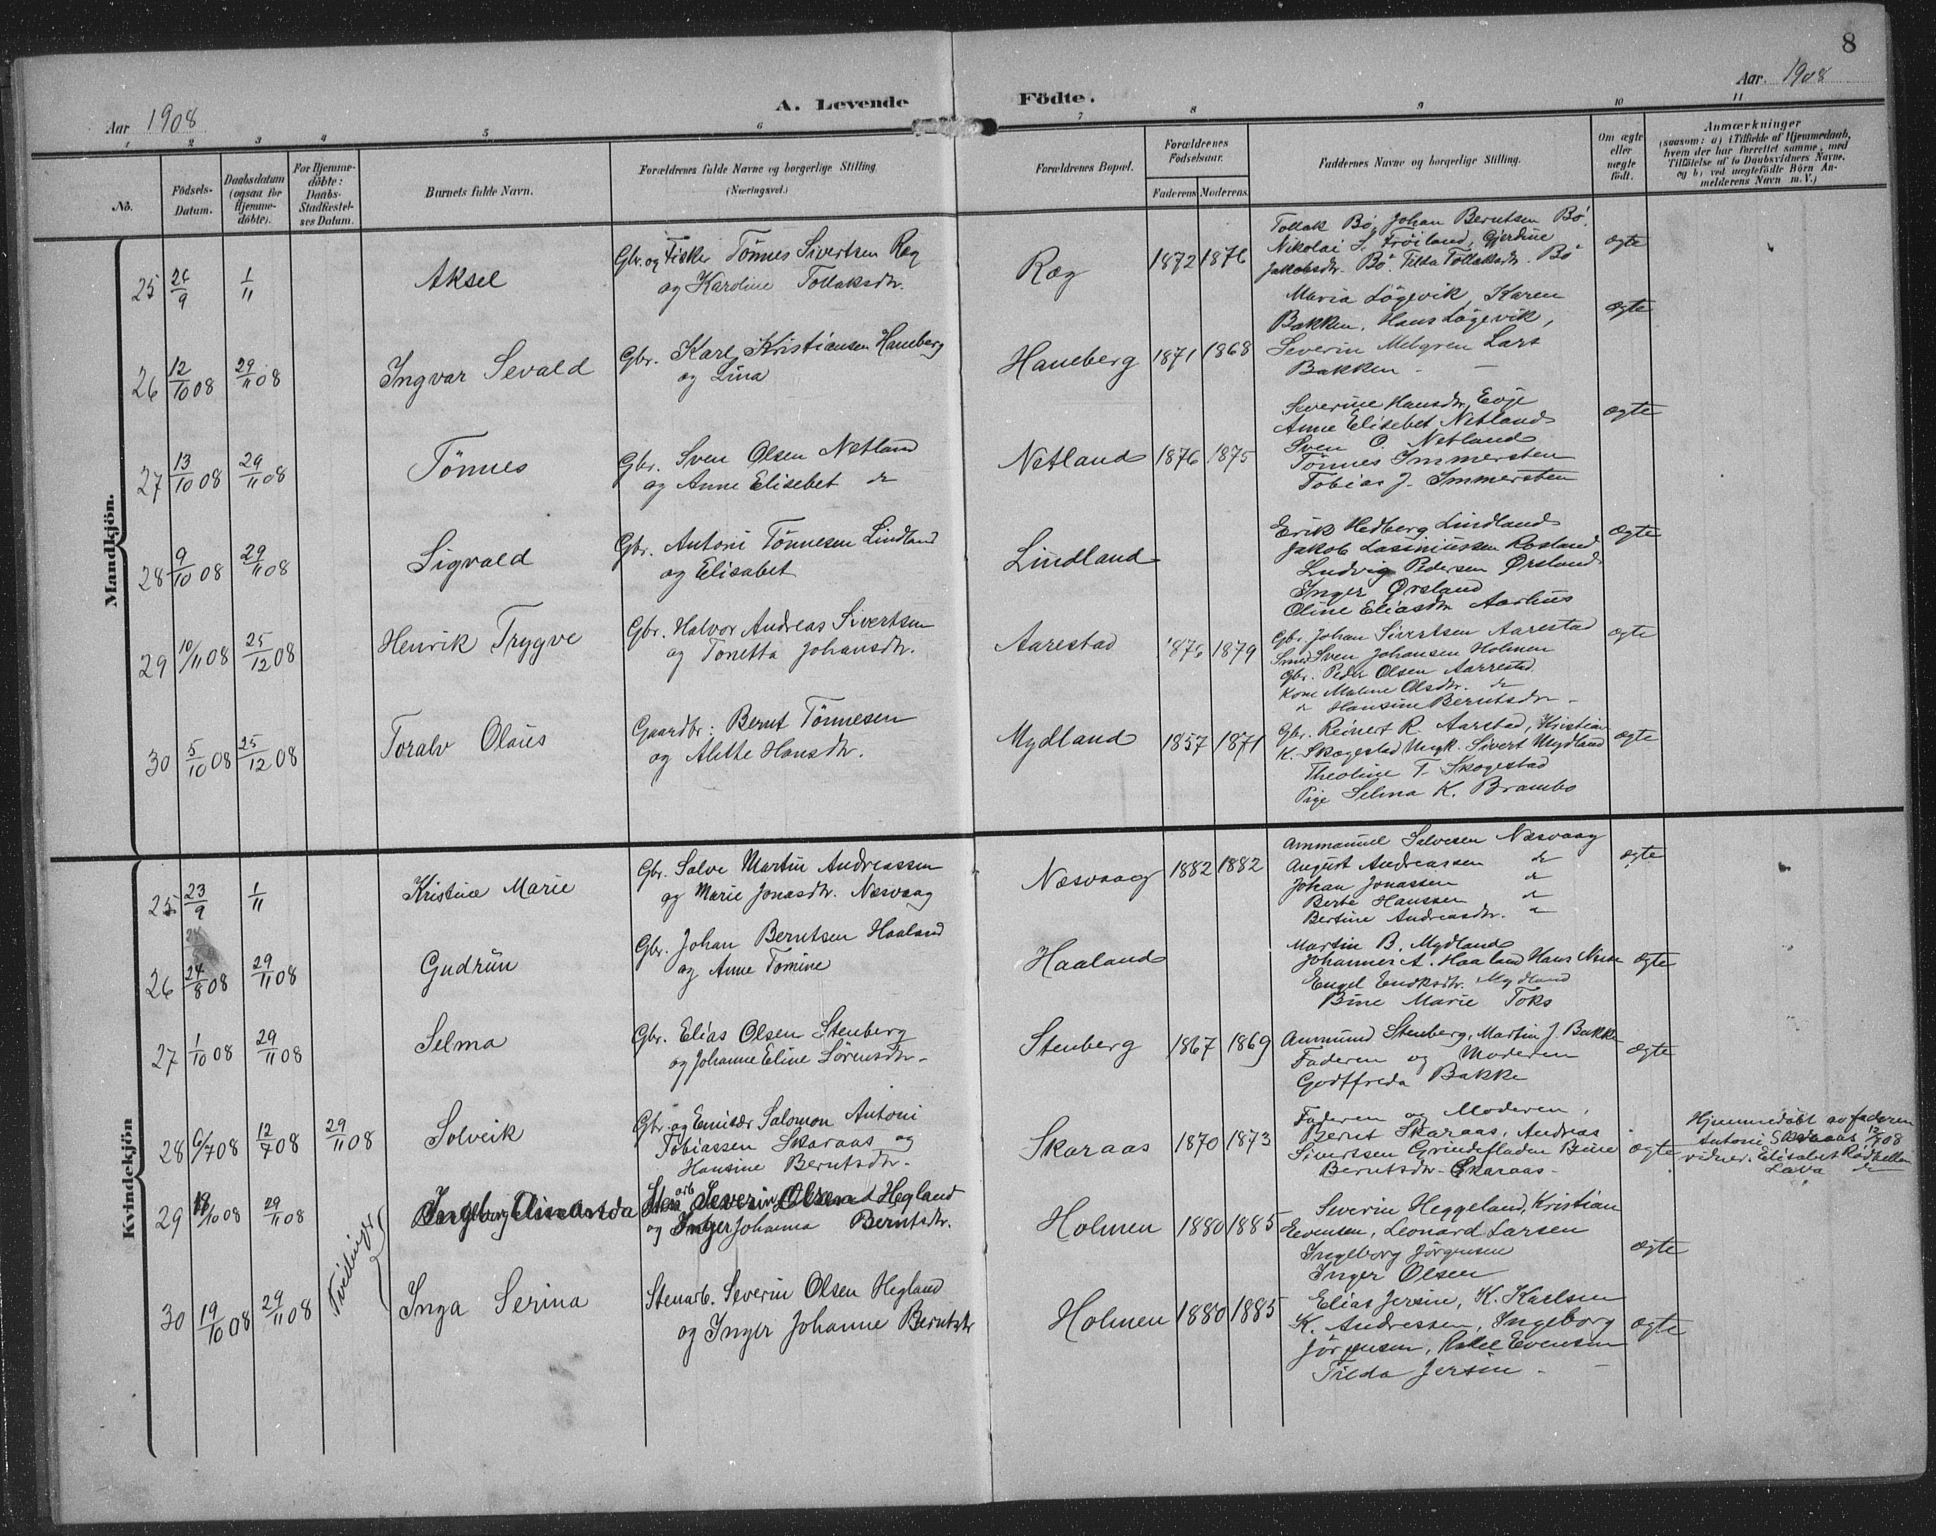 8
Aar 1908
A. Levende Födte.
Aar 1908
1 2 3 4 5 6 7 8 9 10 11
No.
Födsels-
Datum.
Daabsdatum
(ogsaa for
Hjemme-
döbte).
For Hjemme-
döbte:
Daabs-
Stadfæstel-
ses Datum.
Barnets fulde Navn.
Forældrenes fulde Navne og borgerlige Stilling
(Næringsvei.)
Forældrenes Bopæl.
Forældrenes
Födselsaar.
Faderens. Moderens.
Faddernes Navne og borgerlige Stilling.
Om ægte
eller
uægte
födt.
Anmærkninger
(saasom: a) i Tilfælde af Hjemmedaab,
hvem der har forrettet samme, med
Tilföielse af to Daabsvidners Navne,
og b) ved uægtefödte Börn An-
melderens Navn m. V.)
Mandkjön.
25 26/9 1/11 Aksel
Gbr. og Fisker Tönnes Sivertsen Ræg
og Karoline Tollaksdtr.
Ræg 1872 1876
Tollak Bö, Johan Berntsen Bö,
Nikolai S. Fröiland, Gjerdine
Jakobsdtr. Bö. Tilda Tollaksdtr. Bö
ægte
26 12/10 08 29/11 08 Ingvar Sevald
Gbr. Karl Kristiansen Haneberg
og Lina
Haneberg 1871 1868
Maria Lögevik, Karen
Bakken, Hans Lögevik,
Severin Mebgren Lars
Bakken -
ægte
27 13/10 08 29/11 08 Tönnes
Gbr. Sven Olsen Netland
og Anne Elisebet do
Netland 1876 1875
Severine Hansdtr. Eoje
Anne Elisebet Netland
Sven O. Netland
Tönnes Immersten
Tobias J. Immersten
ægte
28 9/10 08 29/11 08 Sigvald
Gbr. Antoni Tönnesen Lindland
og Elisabet
Lindland
Erik Hedberg Lindland
Jakob Lassniussen Rosland
Ludvig Pedersen Ørsland
Inger Ørsland
Oline Eliasdtr. Aarhus
ægte
29 10/11 08 25/12 08 Henrik Trygve
Gbr. Halvor Andreas Sivertsen
og Tonetta Johansdtr.
Aarestad 1876 1879
Gbr. Johan Sivertsen Aarestad
Smed Sven Johansen Holmen
Gbr. Peder Olsen Aarrestad
Kone Maline Olsdtr. do
do Hansine Berntsdtr -
ægte
30 5/10 08 25/12 08 Toralv Olaus
Gaardbr: Bernt Tönnesen
og Alette Hansdtr.
Mydland 1857 1871
Gbr. Reinert R. Aarstad, Kristian
K. Skogestad Ungk. Sivert Mydland
Theoline T. Skogestad
Pige Selma K. Brambo
ægte
Kvindekjön
25 23/9 1/11 Kristine Marie
Gbr. Salve Martin Andreassen
og Marie Jonasdtr. Næsvaag
Næsvaag 1882 1882
Ammanuel Salvesen Næsvaag
August Andreassen do
Johan Jonassen do
Berte Hanssen do
Bertine Andreasdtr. do
ægte
26 24/8 08 29/11 08 Gudrün
Gbr. Johan Berntsen Haaland
og Anne Tomine
Haaland
Martin B. Mydland
Johannes A. Haaland Hans
Engel Mydland
Bine Marie Toks
ægte
27 1/10 08 29/11 08 Selma
Gbr. Elias Olsen Stenberg
og Johanne Eline Sörensdtr -
Stenberg 1867 1869
Ammund Stenberg, Martin J. Bakke
Faderen og Moderen
Godtfreda Bakke
ægte
28 6/7 08 12/7 08 29/11 08 Solveik
Gbr. og Emisær Salomon Antoni
Tobiassen Skaraas og
Hansine Berntsdtr.
Skaraas 1870 1873
Faderen og Moderen,
Bernt Skaraas, Andreas
Sivertsen Grindefladen Bine
Berntsdtr - Skaraas -
ægte
Hjemmedöbt av faderen
Antoni Skaraas 12/7 08
vidner. Elisabet Rödhellen
Lava do
29 18/10 08 29/11 08
Tvillinger
Severin Olsen Hegland
og Inger Johanna Berntsdtr.
Holmen 1880 1885
Severin Heggeland, Kristian
Evensen, Leonard Larsen
Ingeborg Jörgensen
Inger Olsen
ægte
30 19/10 08 29/11 08 Inga Serina
Stenarb. Severin Olsen Hegland
og Inger Johanne Berntsdtr
Holmen 1880 1885
Elias Jersin, K. Karlsen
K. Andressen, Ingeborg
Jörgensen, Rakel Evensen
Tilda Jersin -
ægte